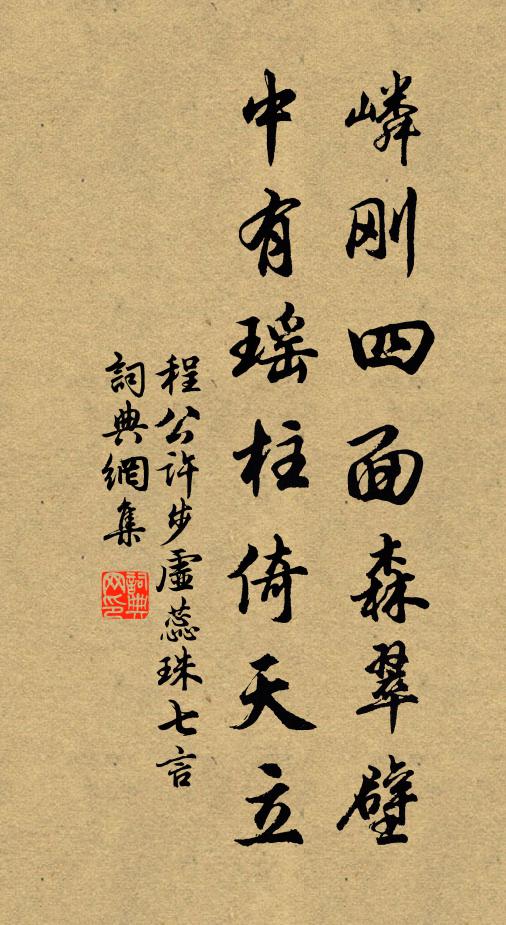 嶙刚四面森翠壁
中有瑶柱倚天立
程公许步虚蕊珠七言
詞典網集
詞典网印